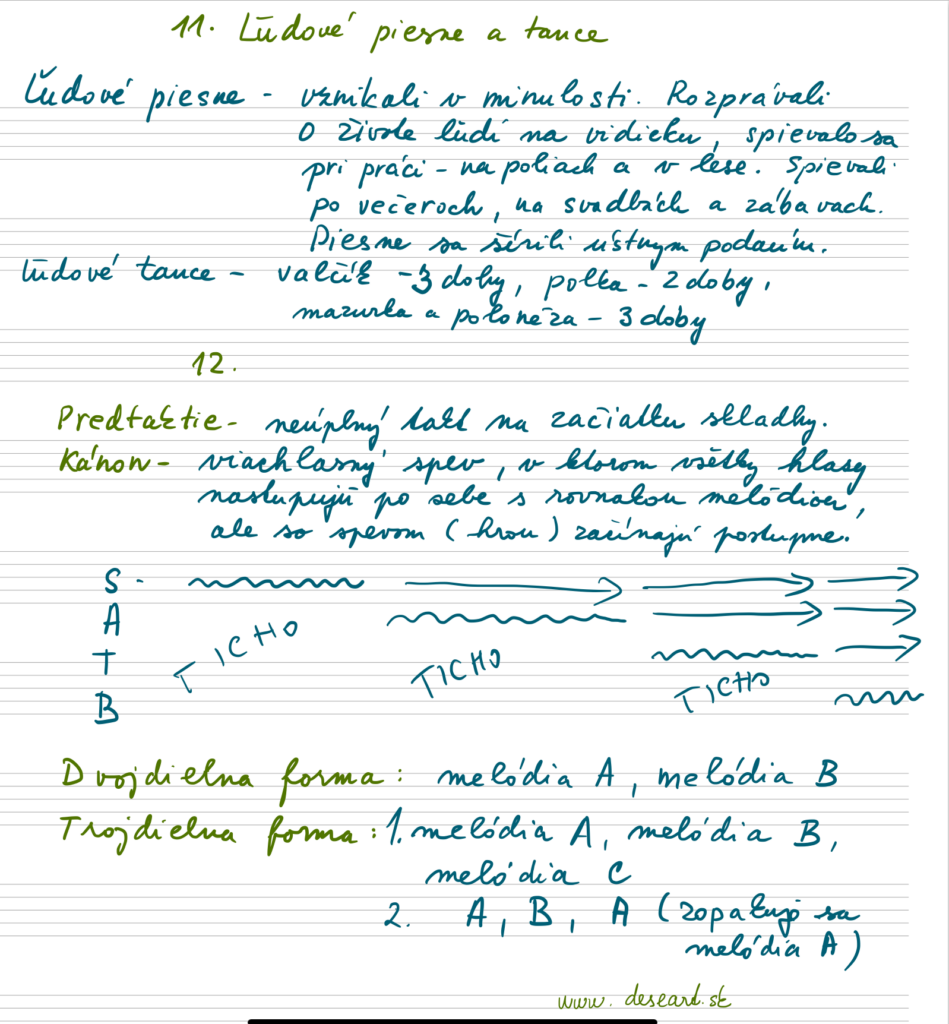 11. Ľudové piesne a tance
Ľudové piesne - vznikali v minulosti. Rozprávali
o živote ľudí na vidieku, spievalo sa
pri práci - na poliach a v lese. Spievali
po večeroch, na svadbách a zábavach.
Piesne sa šírili ústnym podaním.
Ľudové tance - valčík - 3 doby, polka - 2 doby,
mazurka a polonéza - 3 doby
12.
Predtaktie - neúplný takt na začiatku skladby.
Kánon - viachlasný spev, v ktorom všetky hlasy
nastupujú po sebe s rovnakou melódiou,
ale so spevom (hrou) začínajú postupne.
S -
A
TICHO
T
TICHO
TICHO
B
Dvojdielna forma: melódia A, melódia B
Trojdielna forma: 1. melódia A, melódia B,
melódia C
2. A, B, A (zopakujo sa
melódia A)
www.deseard.sk